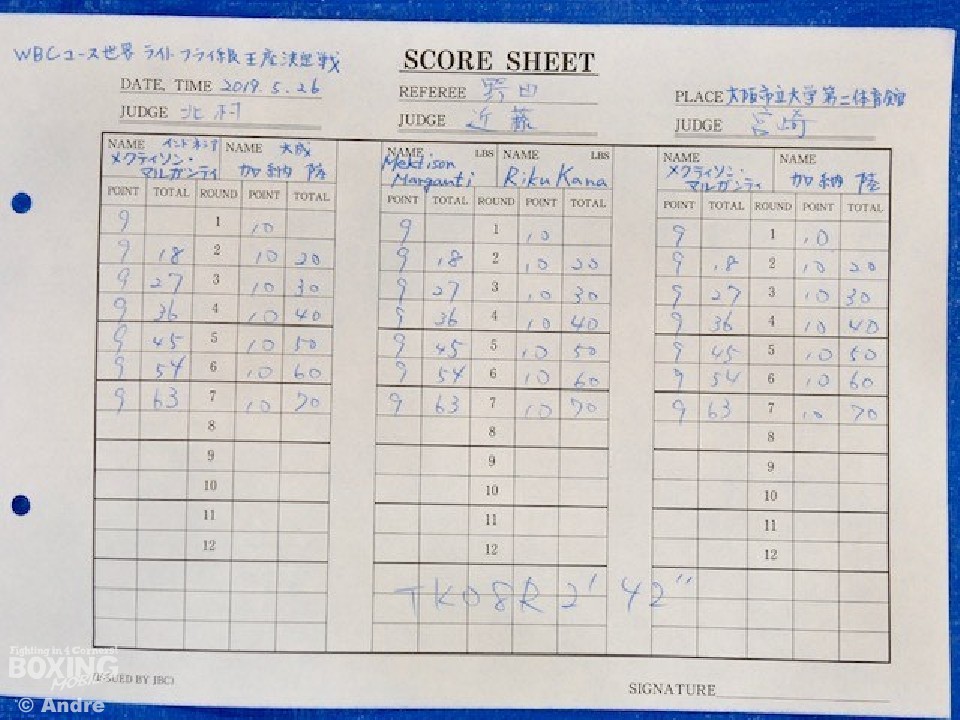 WBCユース世界 ライトフライ級王座決定戦
SCORE SHEET
DATE, TIME 2019. 5. 26
REFEREE 野田
PLACE 大阪市立大学第二体育館
JUDGE 北村
JUDGE 近藤
JUDGE 宮崎
NAME インドネシア メクティソン・マルガンティ NAME 大成 加納 陸
NAME LBS Mektison Marganti NAME LBS Riku Kana
NAME メクティソン・マルガンティ NAME 加納 陸
POINT TOTAL ROUND POINT TOTAL POINT TOTAL ROUND POINT TOTAL POINT TOTAL ROUND POINT TOTAL
9 1 10 9 1 10 9 1 10
9 18 2 10 20 9 18 2 10 20 9 18 2 10 20
9 27 3 10 30 9 27 3 10 30 9 27 3 10 30
9 36 4 10 40 9 36 4 10 40 9 36 4 10 40
9 45 5 10 50 9 45 5 10 50 9 45 5 10 50
9 54 6 10 60 9 54 6 10 60 9 54 6 10 60
9 63 7 10 70 9 63 7 10 70 9 63 7 10 70
8 8 8
9 9 9
10 10 10
11 11 11
12 12 12
TKO 8R 2' 42"
Fighting in 4 Corners!
BOXING
MOBILE
ISSUED BY JBC)
SIGNATURE
© Andre